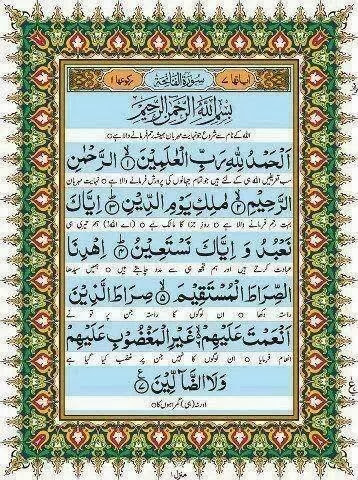 اٰیاتها ٧ سُوْرَةُ الْفَاتِحَةِ رکوعها ١
بِسْمِ اللّٰهِ الرَّحْمٰنِ الرَّحِيْمِ
اللہ کے نام سے شروع جو نہایت مہربان ہمیشہ رحم فرمانے والا ہے
اَلْحَمْدُ لِلّٰهِ رَبِّ الْعٰلَمِيْنَ ۙ﴿۱﴾ الرَّحْمٰنِ
سب تعریفیں اللہ ہی کے لئے ہیں جو تمام جہانوں کی پرورش فرمانے والا ہے ○ نہایت مہربان
الرَّحِيْمِ ۙ﴿۲﴾ مٰلِكِ يَوْمِ الدِّيْنِ ؕ﴿۳﴾ اِيَّاكَ
بہت رحم فرمانے والا ہے ○ روز جزا کا مالک ہے ○ (اے اللہ!) ہم تیری ہی
نَعْبُدُ وَ اِيَّاكَ نَسْتَعِيْنُ ؕ﴿۴﴾ اِهْدِنَا
عبادت کرتے ہیں اور ہم تجھ ہی سے مدد چاہتے ہیں ○ ہمیں سیدھا
الصِّرَاطَ الْمُسْتَقِيْمَ ۙ﴿۵﴾ صِرَاطَ الَّذِيْنَ
راستہ دکھا ○ ان لوگوں کا راستہ جن پر تو نے
اَنْعَمْتَ عَلَيْهِمْ ۙ﴿۶﴾ غَيْرِ الْمَغْضُوْبِ عَلَيْهِمْ
انعام فرمایا ○ ان لوگوں کا نہیں جن پر غضب کیا گیا ہے
وَلَا الضَّآلِّيْنَ ﴿۷﴾
اور نہ (ہی) گمراہوں کا ○
منزل ١